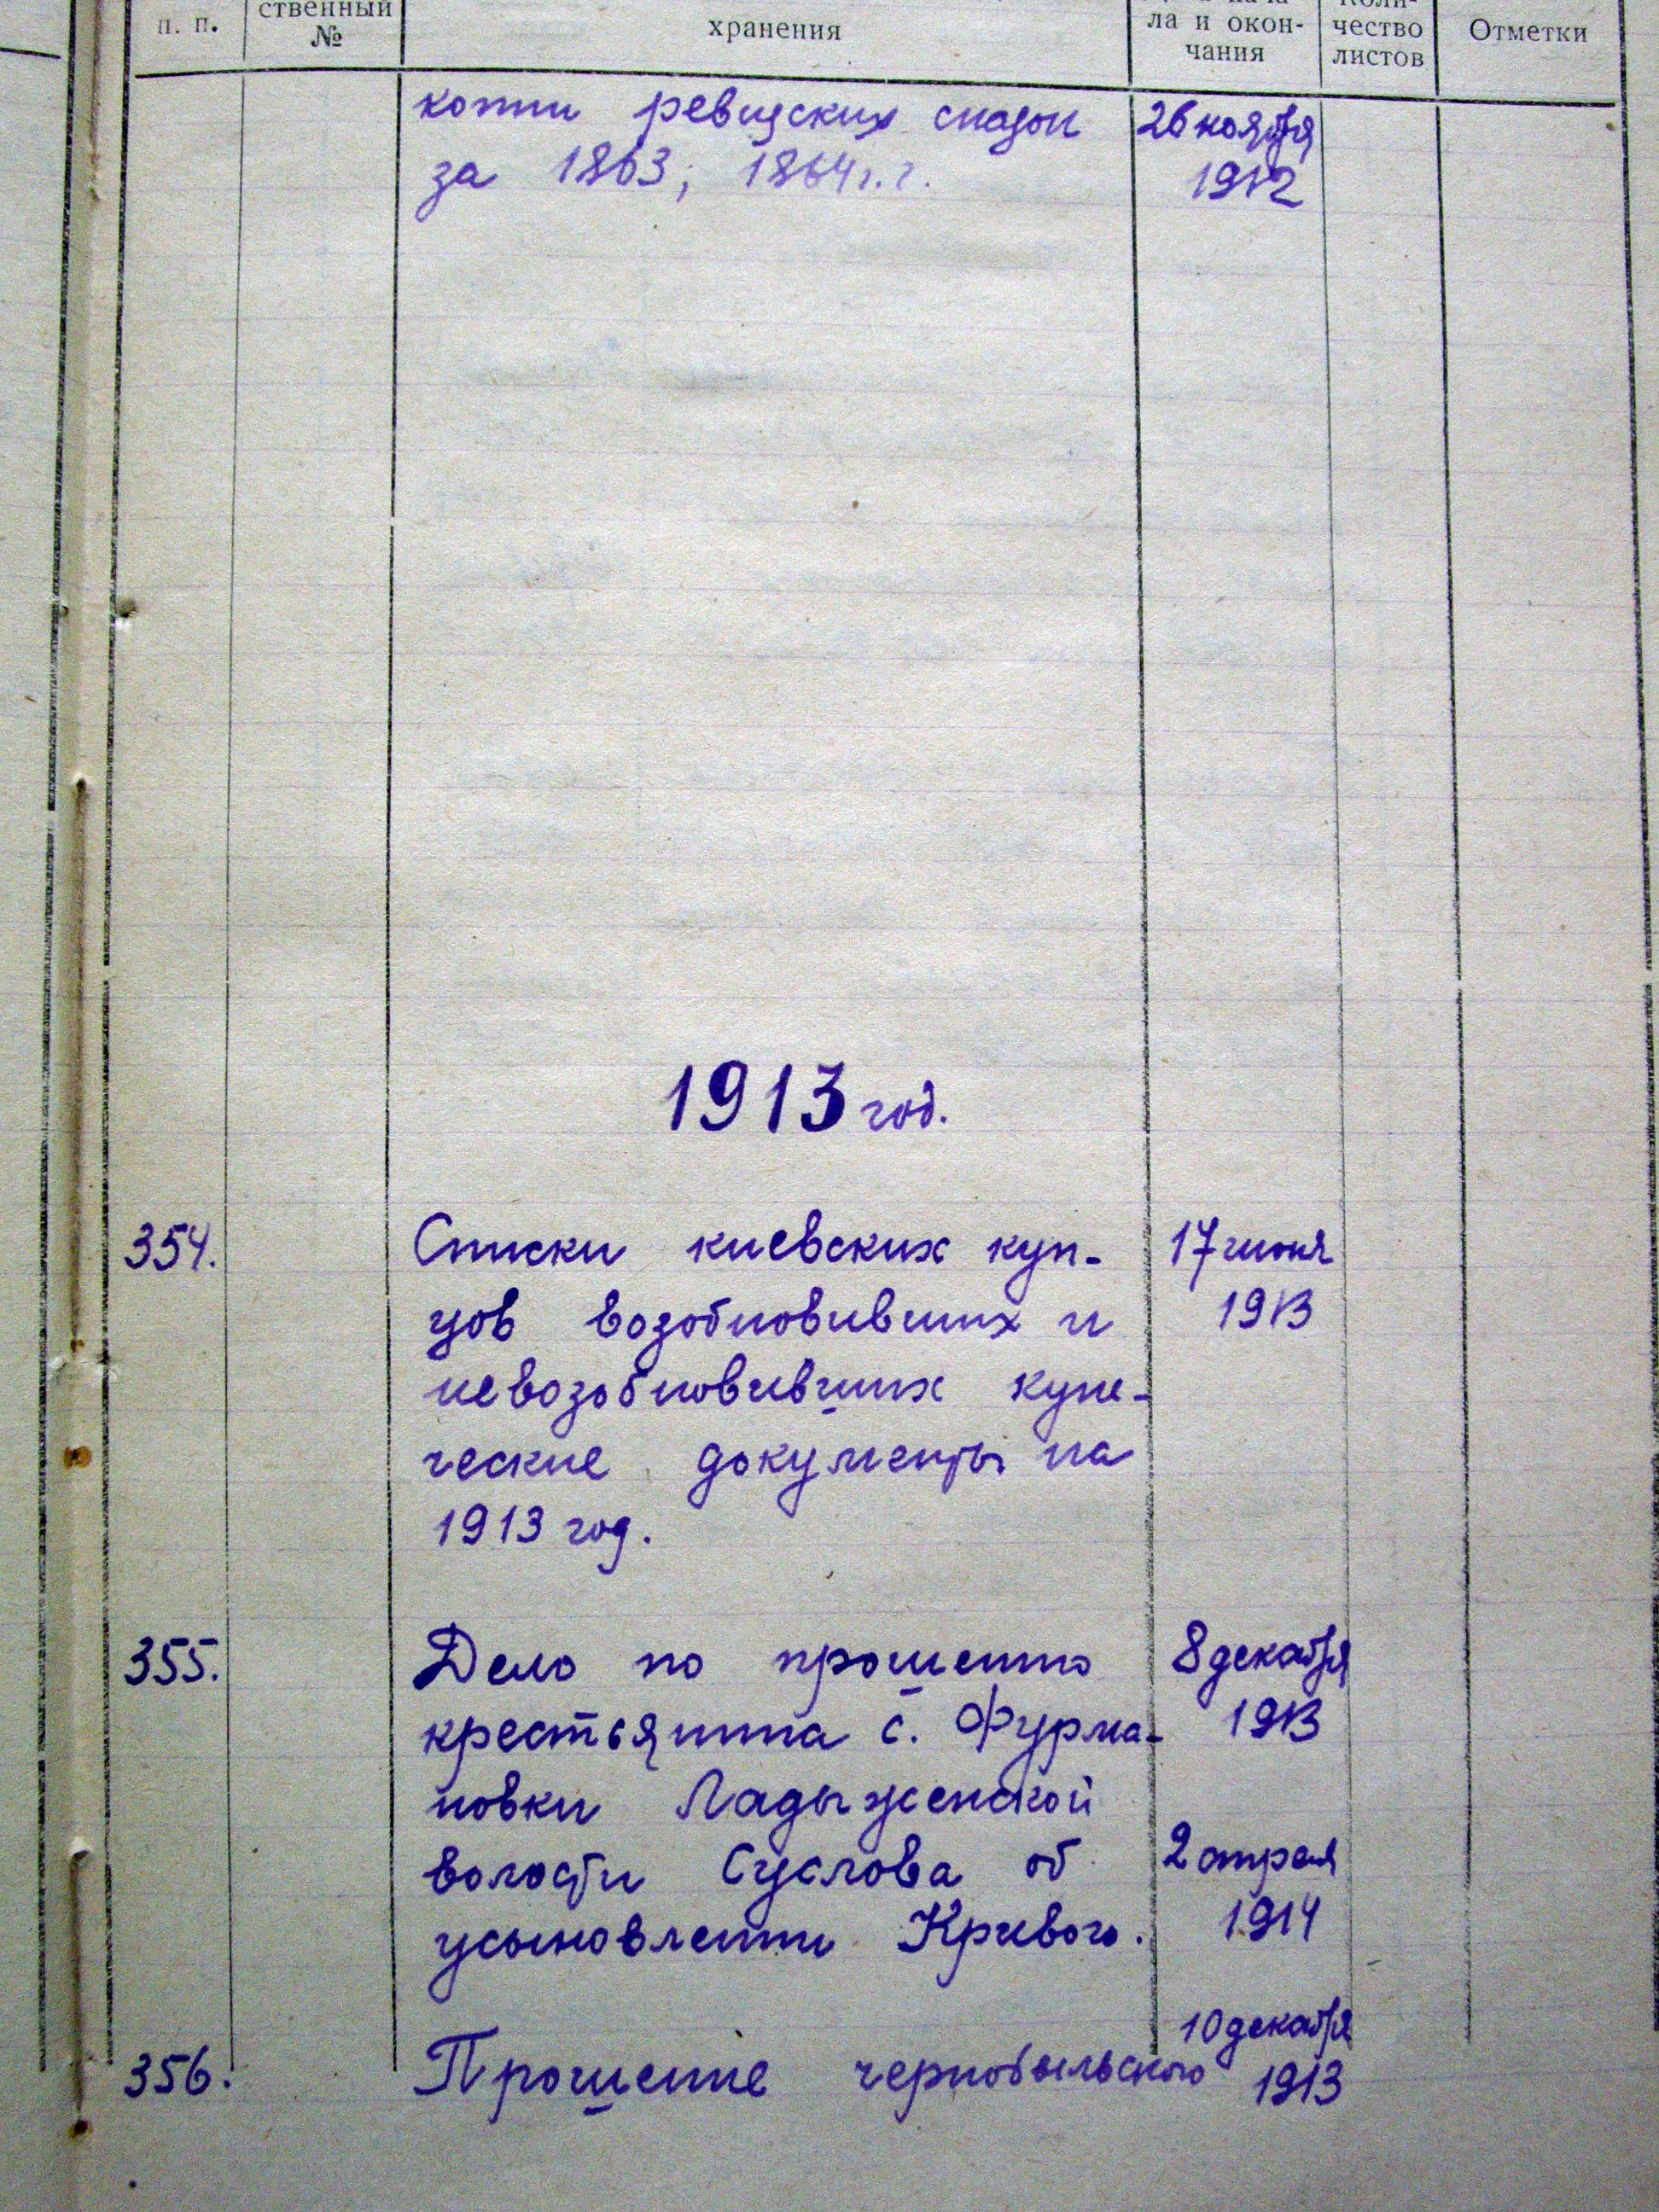 п. п.
ственный
№
хранения
ла и окон-
чания
чество
листов
Отметки
копии ревизских сказок 26 ноября
за 1863, 1864 г.г. 1912
1913 год.
354. Списки киевских куп- 17 июня
цов возобновивших и 1913
невозобновивших купе-
ческие документы на
1913 год.
355. Дело по прошению 8 декабря
крестьянина с. Фурма- 1913
новки Ладыженской
волости Суслова об 2 апреля
усыновлении Кривого. 1914
10 декабря
356. Прошение чернобыльского 1913